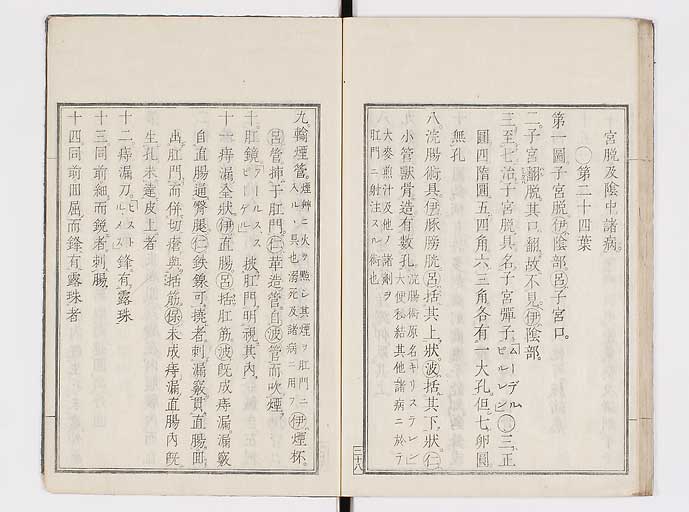 宮脱及陰中諸病。
〇第二十四葉
第一圖子宮脱㊀伊陰部。呂子宮口。
二子宮飜脱。其口飜。故不見。伊陰部。
三至七治子宮脱具。名子宮彈子。ムーデル ピルレン 〇三正
圓。四隋圓。五四角。六三角。各有一大孔。但七卵圓。
無孔
八浣腸術具。伊豚膀胱。呂括其上狀。波括其下狀。仁
小管。獸骨造。有數孔。浣腸術原名「キリステレン」大便秘結其他諸病ニ於テ
大麥煎汁及他ノ諸劑ヲ
肛門ニ射注スル術也
九。輸煙管。煙艸ニ火ヲ點シ其煙ヲ肛門ニ入ル、具也溺死及諸病ニ用フ 伊煙杯。
呂管。挿于肛門。仁革造管。自波管而吹煙。
十。肛鏡 アールスス ピーゲル 披肛門。明視其内。
十一痔漏全狀。伊直腸。呂括肛筋。波既成痔漏。漏竅
自直腸通臀腿。仁鉄鑱可撓者。刺漏竅。貫直腸。囬
出肛門而併切瘡與括筋。保未成痔漏。直腸内既
生孔。未達皮上者
十二痔漏刀。ヒスト ルメス 鋒有露珠
十三同前細。而鋭者。刺腸。
十四同前囬屈。而鋒有露珠者
三十八